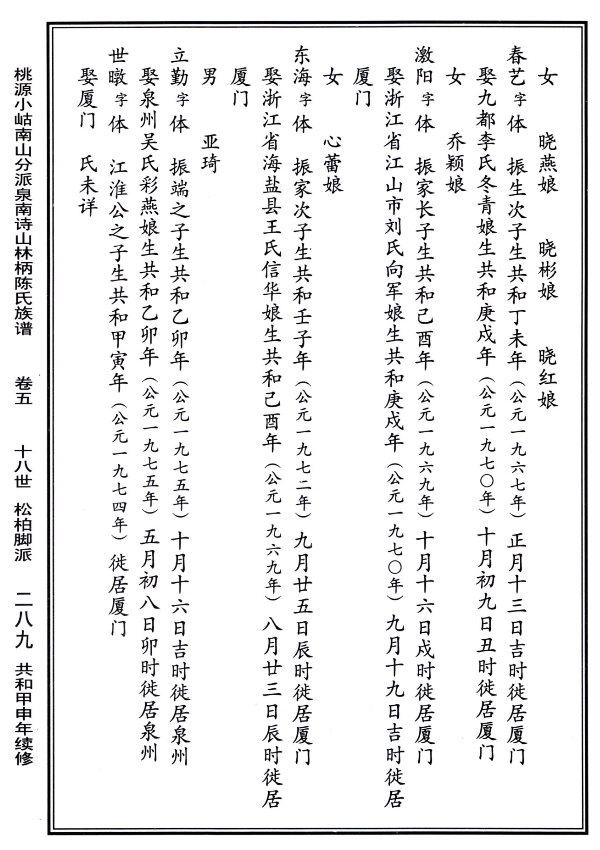 女　晓燕娘　晓彬娘　晓红娘
春艺字　体　振生次子生共和丁未年（公元一九六七年）正月十三日吉时徙居厦门
娶九都李氏冬青娘生共和庚戌年（公元一九七〇年）十月初九日丑时徙居厦门
女　乔颖娘
激阳字　体　振家长子生共和己酉年（公元一九六九年）十月十六日戌时徙居厦门
娶浙江省江山市刘氏向军娘生共和庚戌年（公元一九七〇年）九月十九日吉时徙居
厦门
女　心蕾娘
东海字　体　振家次子生共和壬子年（公元一九七二年）九月廿五日辰时徙居厦门
娶浙江省海盐县王氏信华娘生共和己酉年（公元一九六九年）八月廿三日辰时徙居
厦门
男　亚琦
立勤字　体　振端之子生共和乙卯年（公元一九七五年）十月十六日吉时徙居泉州
娶泉州吴氏彩燕娘生共和乙卯年（公元一九七五年）五月初八日卯时徙居泉州
世暾字　体　江淮公之子生共和甲寅年（公元一九七四年）徙居厦门
娶厦门　氏未详
桃源小岵南山分派泉南诗山林柄陈氏族谱　卷五　十八世　松柏脚派　二八九　共和甲申年续修